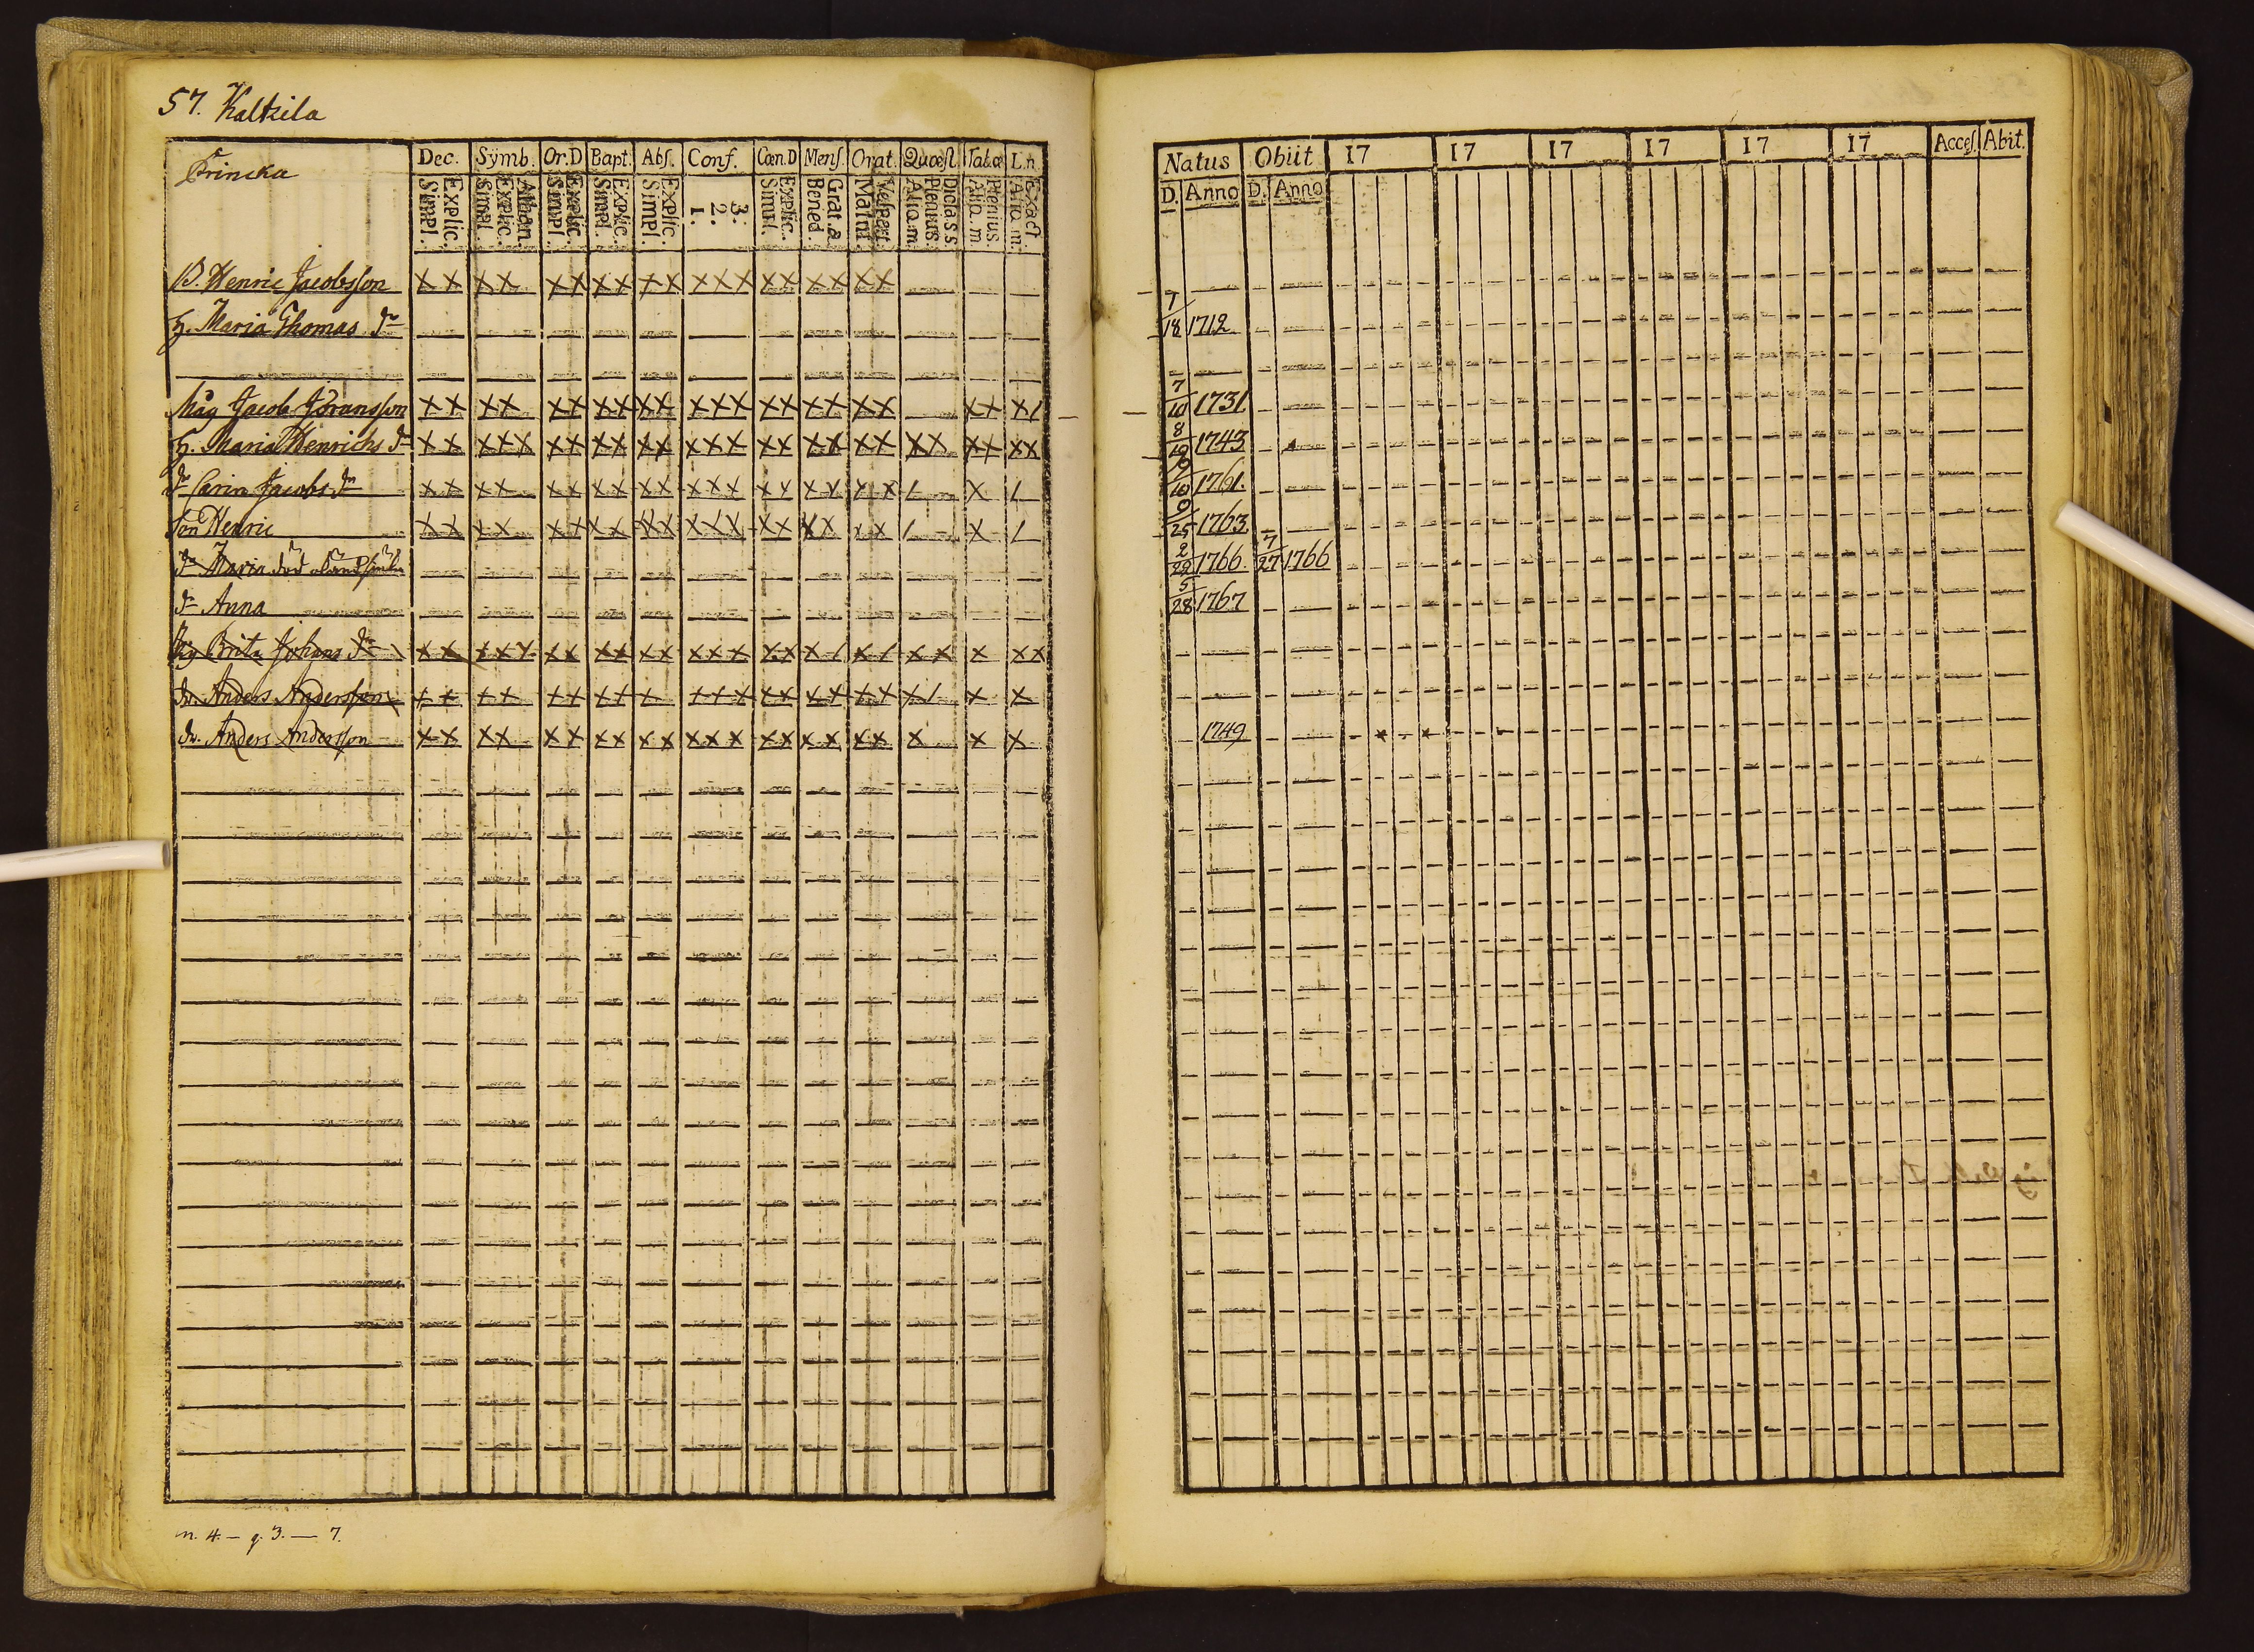 57. Kaltzila
Princka
Dec. Symb. Or.D Bapt. Abſ. Conf. Cœn.D Menſ. Orat. Quæſt. Tab.œ L.n.
Simpl. Explic. Simpl. Explic. Athan. Simpl. Explic. Simpl. Explic. Simpl. Explic. 1. 2. 3. Simpl. Explic. Bened. Grat.æ Matut. Veſpert. Aliq.m. Plenius. Dicta s.s. Aliq.m. Plenius. Aliq.m. Exact.
B. Henric Jacobsſon ×× ×× ×× ×× ×× ××× ×× ×× ××
H. Maria Thomas dr
Måg Jacob Jöransſon ×× ×× ×× ×× ×× ××× ×× ×× ×× ×× ×/
H. Maria Henrichs dr ×× ××× ×× ×× ×× ××× ×× ×× ×× ×× ×× ××
dr Carin Jacobs dr ×× ×× ×× ×× ×× ××× ×× ×× ×× / × /
Son Henric ×× ×× ×× ×× ×× ××× ×× ×× ×× / × /
dr Maria död
dr Anna
Brita Johans dr ×× ××× ×× ×× ×× ××× ×× ×/ ×/ ×× × ××
dr. Anders Andersſon ×× ×× ×× ×× × ××× ×× ×× ×× ×/ × ×
dr. Anders Andersſon ×× ×× ×× ×× ×× ××× ×× ×× ×× × × ×
n. 4. — q. 3. — 7.
Natus Obiit 17 17 17 17 17 17 Acceſ. Abit.
D. Anno D. Anno
7/18 1712
7/10 1731
8/19 1743
9/10 1761
9/25 1763
2/29 1766 7/27 1766
5/28 1767
1749